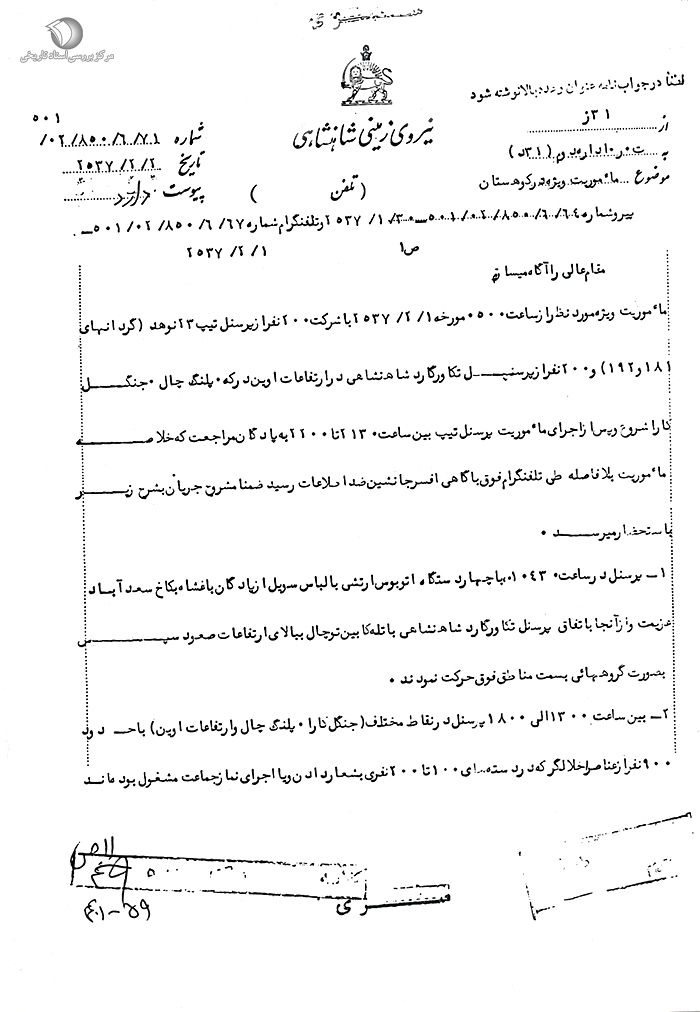 مرکز بررسی اسناد تاریخی
لطفاً در جواب نامه عنوان و عدد بالا نوشته شود
نیروی زمینی شاهنشاهی
(تلفن )
از ۳۱ ز
به اداره دوم (۳۱د)
موضوع مأموریت ویژه در کوهستان
۵۰۱
شماره ۰۲/۸۵۰/۶/۷۱/
تاریخ ۲۵۳۷/۲/۲
پیوست دارد
پیرو شماره ۵۰۱/۰۲/۸۵۰/۶/۶۴ - ۲۵۳۷/۱/۳۰ و تلفنگرام شماره ۵۰۱/۰۲/۸۵۰/۶/۶۷ -
۲۵۳۷/۲/۱
ص۱
مقام عالی را آگاه میسازد
مأموریت ویژه مورد نظر از ساعت ۰۵۰۰ مورخه ۲۵۳۷/۲/۱ با شرکت ۲۰۰ نفر از پرسنل تیپ ۲۳ نوهد (گردانهای
۱۸۱ و ۱۹۲) و ۲۰۰ نفر از پرسنل تکاور گارد شاهنشاهی در ارتفاعات اوین درکه ۰ پلنگ چال ۰ جنگل
کارا شروع و پس از اجرای مأموریت پرسنل تیپ بین ساعت ۲۱۳۰ تا ۲۲۰۰ به پادگان مراجعت که خلاصه
مأموریت بلافاصله طی تلفنگرام فوق باگاهی افسر جانشین ضد اطلاعات رسید ضمنا مشروح جریان بشرح زیر
باستحضار میرسد ۰
۱ـ پرسنل در ساعت ۰۴۳۰ با چهار دستگاه اتوبوس ارتشی با لباس سویل از پادگان باغشاه بکاخ سعد آباد
عزیمت و از آنجا باتفاق پرسنل تکاور گارد شاهنشاهی با تله کابین توچال ببالای ارتفاعات صعود سپس
بصورت گروههائی بسمت مناطق فوق حرکت نمودند ۰
۲ـ بین ساعت ۱۳۰۰ الی ۱۸۰۰ پرسنل در نقاط مختلف (جنگل کارا ۰ پلنگ چال و ارتفاعات اوین) با حدود
۹۰۰ نفر از عناصر اخلالگر که در دسته های ۱۰۰ تا ۲۰۰ نفری بشعار دادن و یا اجرای نماز جماعت مشغول بوده اند